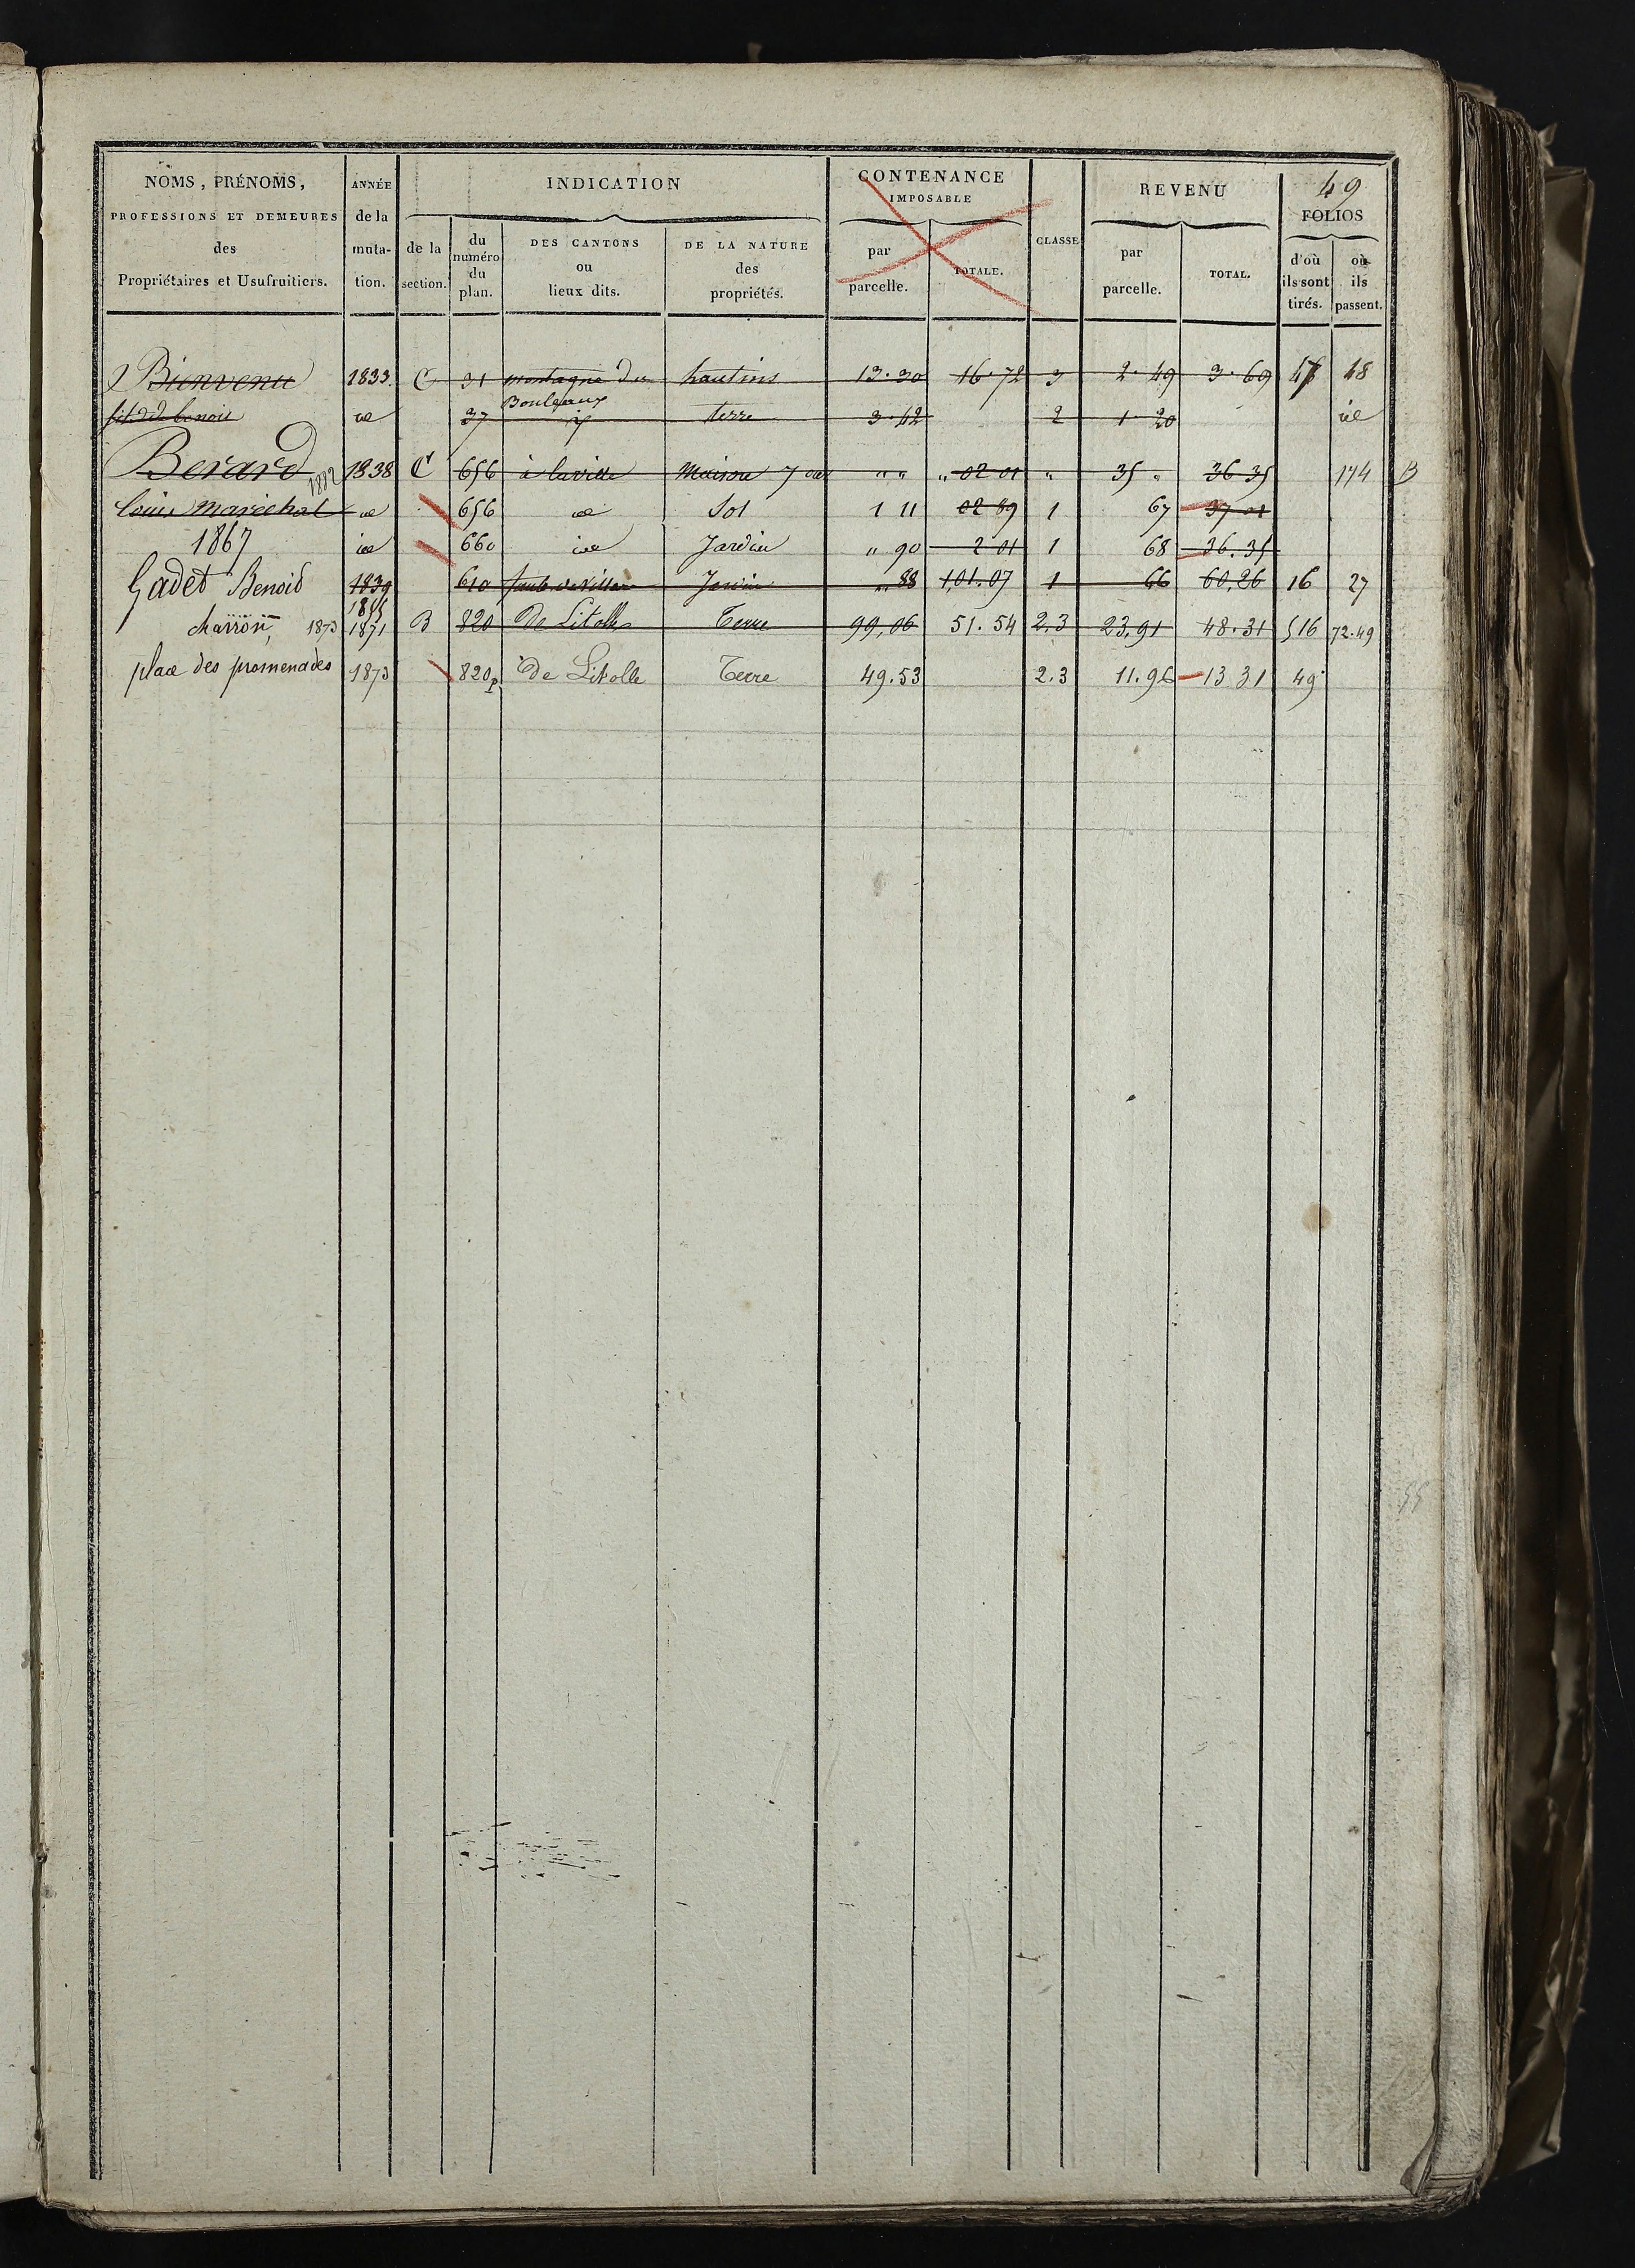 49
NOMS, PRÉNOMS, PROFESSIONS ET DEMEURES des Propriétaires et Usufruitiers.
ANNÉE de la muta- tion.
INDICATION
de la section.
du numéro du plan.
DES CANTONS ou lieux dits.
DE LA NATURE des propriétés.
CONTENANCE IMPOSABLE
par parcelle.
TOTALE.
CLASSE
REVENU
par parcelle.
TOTAL.
FOLIOS
d'où ils sont tirés.
où ils passent.
Bienvenu 1833. C 31 montagne des hautins 13.30 16.72 3 2.49 3.69 47 48
Bouleaux
benoit id 37 terre 3.42 2 1.20 id
Berard 1882 1838 C 656 à la ville Maison 7 " " " 02 01 " 35 " 36 35 174 B
louis Marechal id 656 id Sol 1 11 02 89 1 67 37 01
1867 id 660 id Jardin " 90 2 01 1 68 36.35
Gadet Benoid 1839 610 Jardin " 88 1,01.07 1 66 60,26 16 27
charron, 1873 1871 B 820 De Litolle Terre 99,06 51.54 2.3 23,91 48.31 516 72.49
place des promenades 1873 820p De Litolle Terre 49.53 2.3 11.96 13 31 49